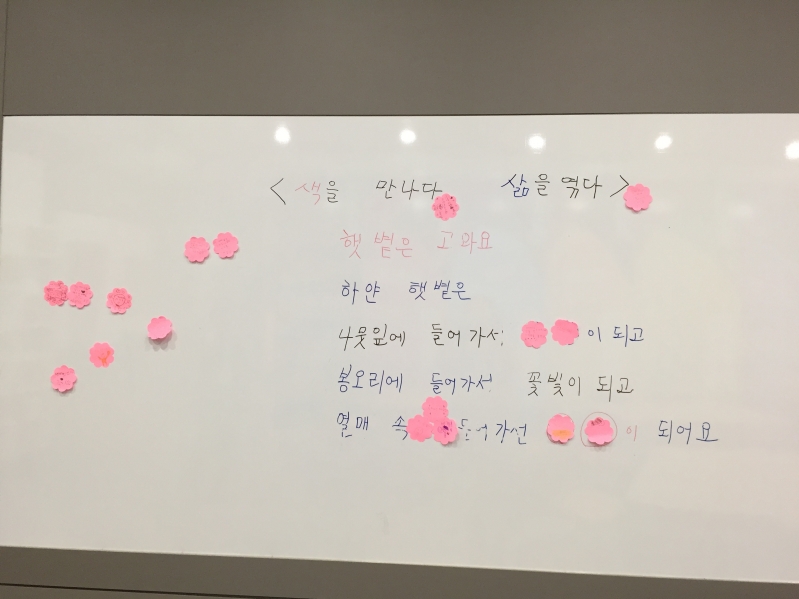 <색을 만나다 삶을 엮다>
햇볕은 고와요
하얀 햇볕은
나뭇잎에 들어가서 이 되고
봉오리에 들어가서 꽃빛이 되고
열매 속 들어가선 이 되어요